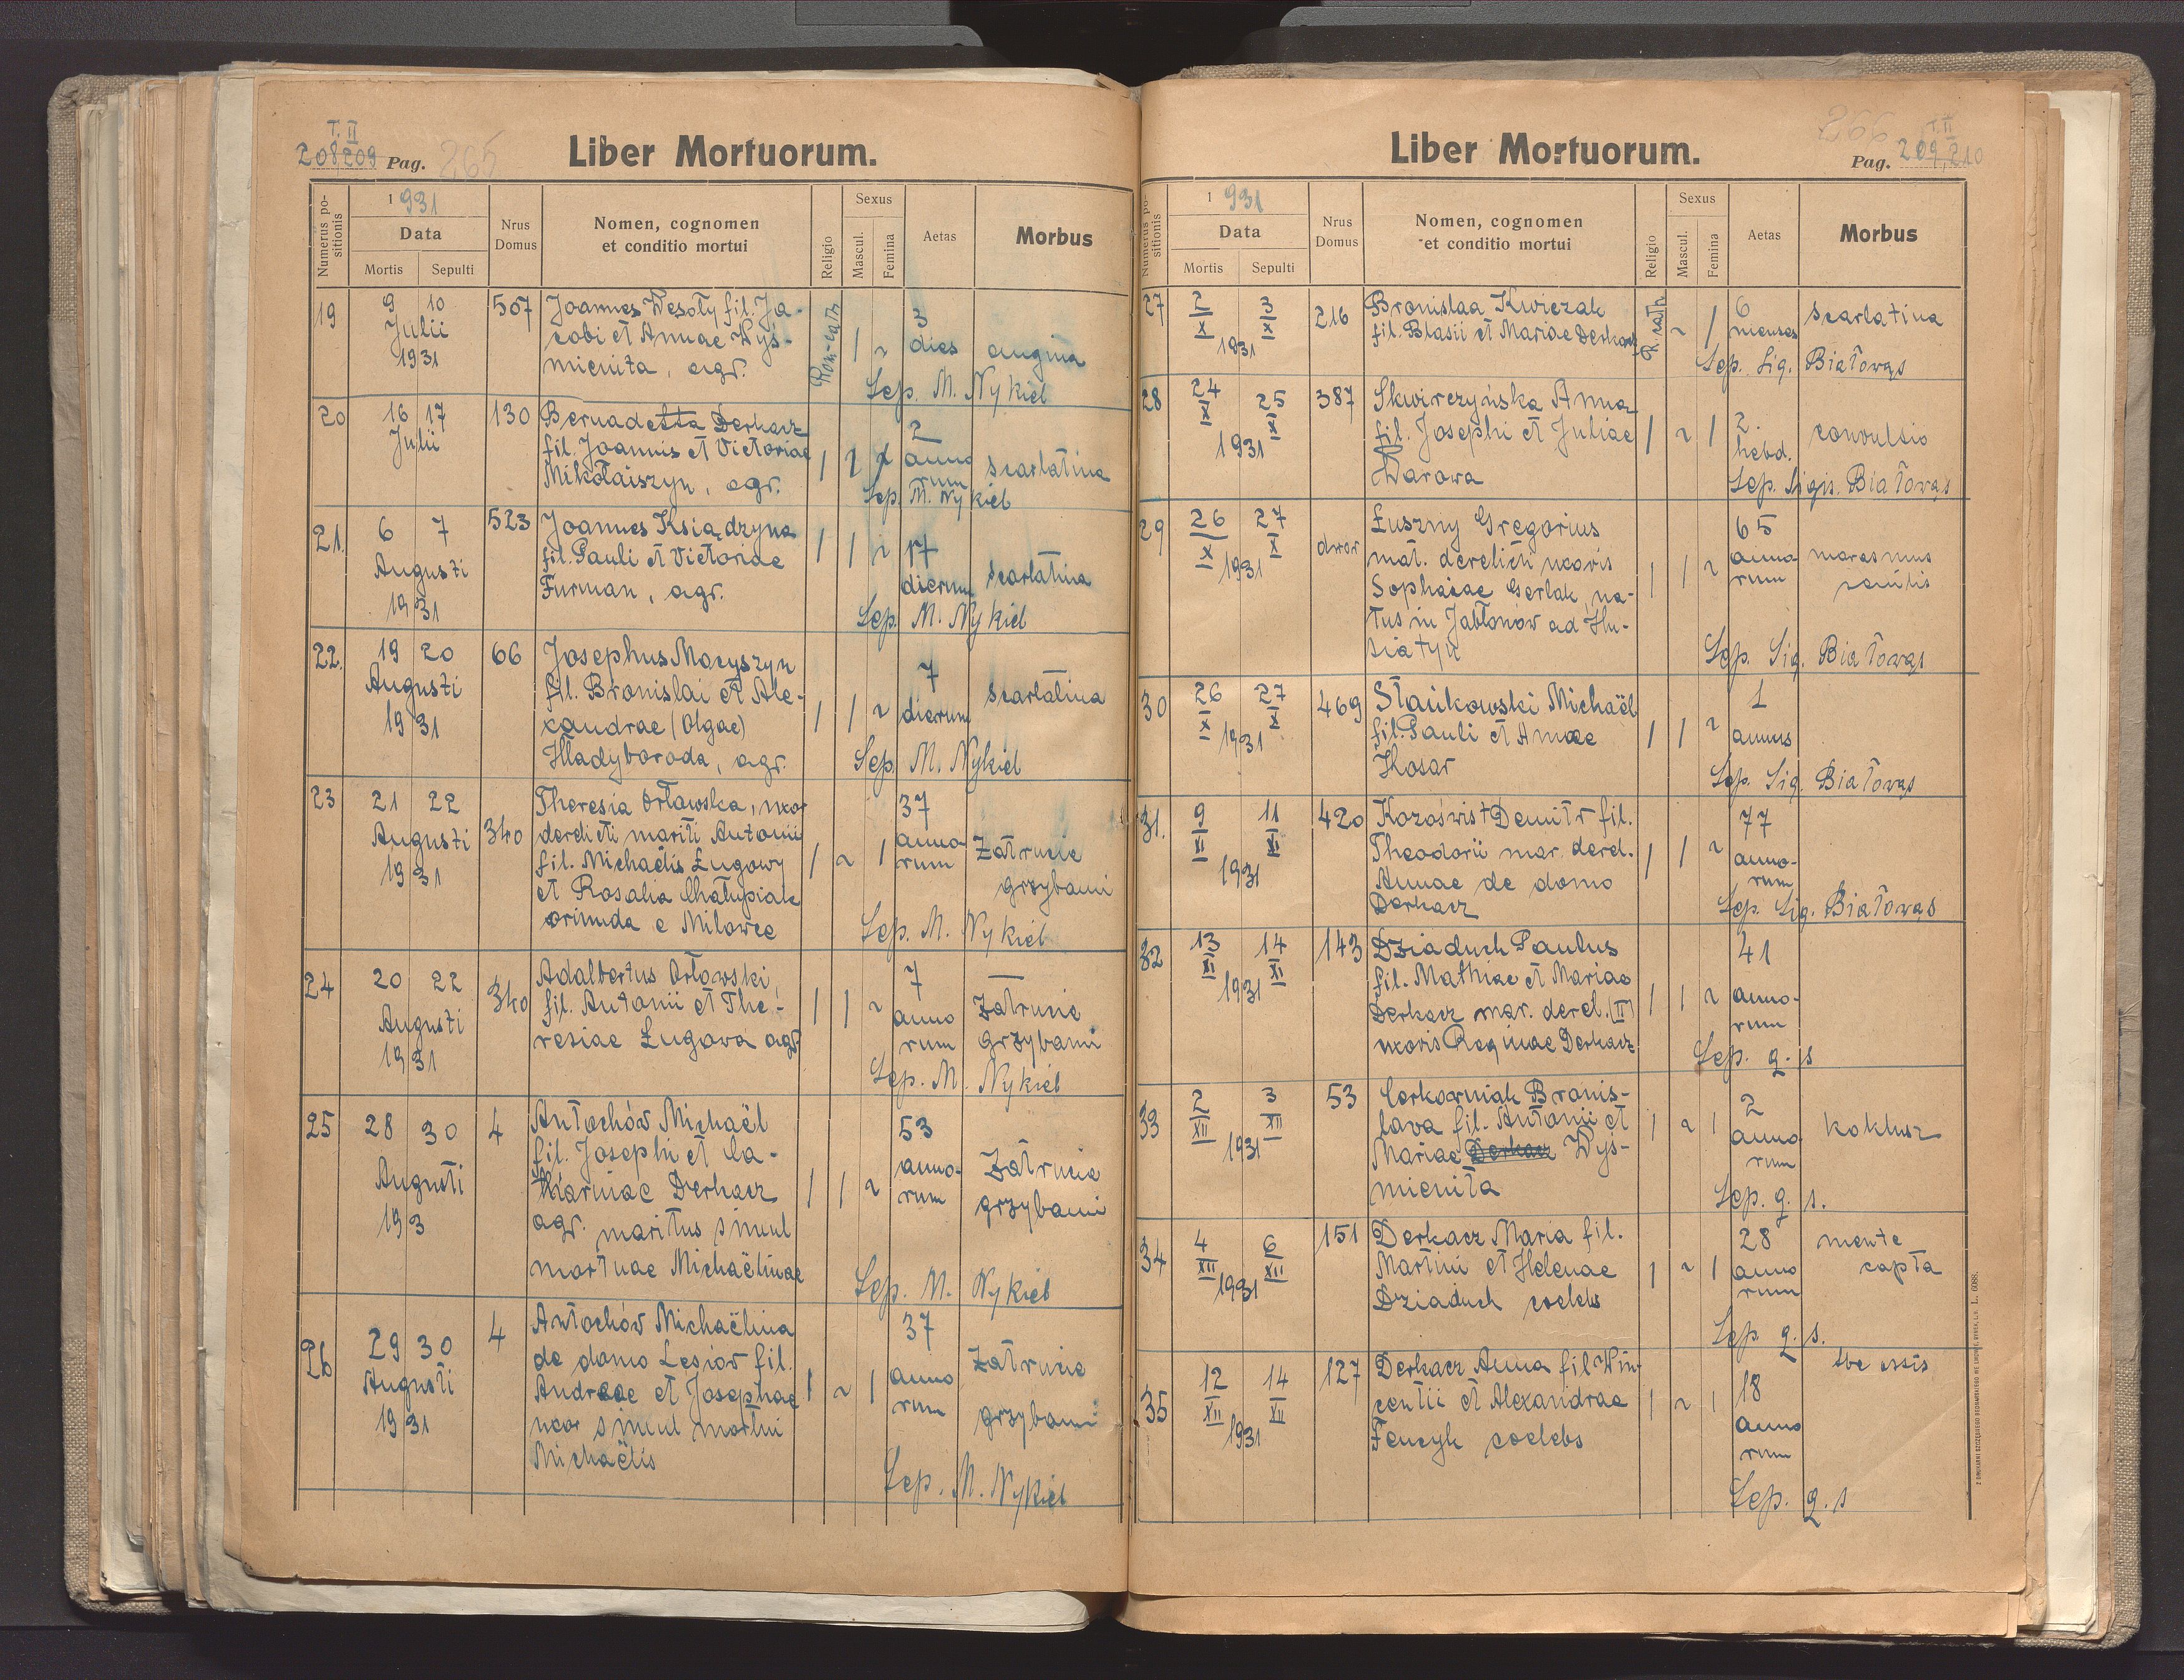 T. II
208209 Pag. 265
Liber Mortuorum.
Numerus po-
sitionis
1 931
Data
Mortis Sepulti
Nrus
Domus
Nomen, cognomen
et conditio mortui
Religio
Sexus
Mascul.
Femina
Aetas
Morbus
19 9 10 507 Joannes Wesoły fil. Ja- Rom-cath. 3
Julii cobi et Annae Wyś- 1 ~ dies angina
1931 mienita, agr.
Sep. M. Nykiel
20 16 17 130 Bernadetta Derkacz 2
Julii fil. Joannis et Victoriae 1 ~ 1 anno scarlatina
Mikołaiszyn, agr. rum
Sep. M. Nykiel
21. 6 7 523 Joannes Ksiądzyna 1 1 ~ 17
Augusti fil. Pauli et Victoriae dierum scarlatina
1931 Furman, agr.
Sep. M. Nykiel
22. 19 20 66 Josephus Macyszyn 7
Augusti fil. Bronislai et Ale- scarlatina
1931 xandrae (Olgae) 1 1 ~ dierum
Hładyboroda, agr.
Sep. M. Nykiel
23 21 22 340 Theresia Orławska, uxor 37
Augusti derelicti mariti Antonii anno- Zatrucie
1931 fil. Michaëlis Ługowy 1 ~ 1 rum grzybami
et Rosalia Chałupiak
oriunda e Milowce
Sep. M. Nykiel
24 20 22 340 Adalbertus Orłowski, 7 —
Augusti fil. Antonii et The- 1 1 ~ anno Zatrucie
1931 resiae Ługowa agr. rum grzybami
Sep. M. Nykiel
25 28 30 4 Antochów Michaël 53
Augusti fil. Josephi et Ca- anno- Zatrucie
193 tharinae Derkacz 1 1 ~ rum grzybami
agr. maritus simul
mortuae Michaëlinae
Sep. M. Nykiel
26 29 30 4 Antochów Michaëlina 37
Augusti de domo Lesiów fil. Zatrucie
1931 Andreae et Josephae 1 ~ 1 anno
uxor simul mortui rum grzybami
Michaëlis
Sep. M. Nykiel
266 T. II
Liber Mortuorum.
Pag. 209, 210
Numerus po-
sitionis
1 931
Data
Mortis Sepulti
Nrus
Domus
Nomen, cognomen
et conditio mortui
Religio
Sexus
Mascul.
Femina
Aetas
Morbus
27 2/X 3/X 216 Bronislaa Kwiczak R. cath. ~ 1 6 scarlatina
1931 fil. Blasii et Mariae Derkacz menses
Sep. Sig. Białowąs
28 24/X 25/X 387 Skwirczyńska Anna
1931 fil. Josephi et Juliae 1 ~ 1 2. convulsio
Warowa hebd.
Sep. Sigis. Białowąs
29 26/X 27/X dwór Łuszny Gregorius 65
1931 mat. derelicti uxoris 1 1 ~ anno- marasmus
Sophaiae Gerlak, na- rum senilis
tus in Jabłonów ad Hu-
siatyn
Sep. Sig. Białowąs
30 26/X 27/X 469 Stańkowski Michaël 1
1931 fil. Pauli et Annae 1 1 ~ annus
Kosar
Sep. Sig. Białowąs
31. 9/XI 11/XI 420 Koroświst Demitr fil. 77
1931 Theodorii mar. derel. 1 1 ~ anno-
Annae de domo rum
Derkacz
Sep. Sig. Białowąs
32 13/XI 14/XI 143 Dziaduch Paulus 41
1931 fil. Mathiae et Mariae
Derkacz mar. derel. (II) 1 1 ~ anno-
uxoris Reginae Derkacz rum
Sep. q. s
33 2/XII 3/XII 53 Cerkowniak Bronis- 2
1931 lava fil. Antonii et 1 ~ 1 anno koklusz
Mariae Derkacz Wyś- rum
mienita
Sep. q. s.
34 4/XII 6/XII 151 Derkacz Maria fil. 28 mente
1931 Martini et Helenae 1 ~ 1 anno capta
Dziaduch coelebs rum
Sep q. s.
35 12/XII 14/XII 127 Derkacz Anna fil Win- tbc
1931 centii et Alexandrae 1 ~ 1 18
Fencyk coelebs anno
rum
Sep. q. s